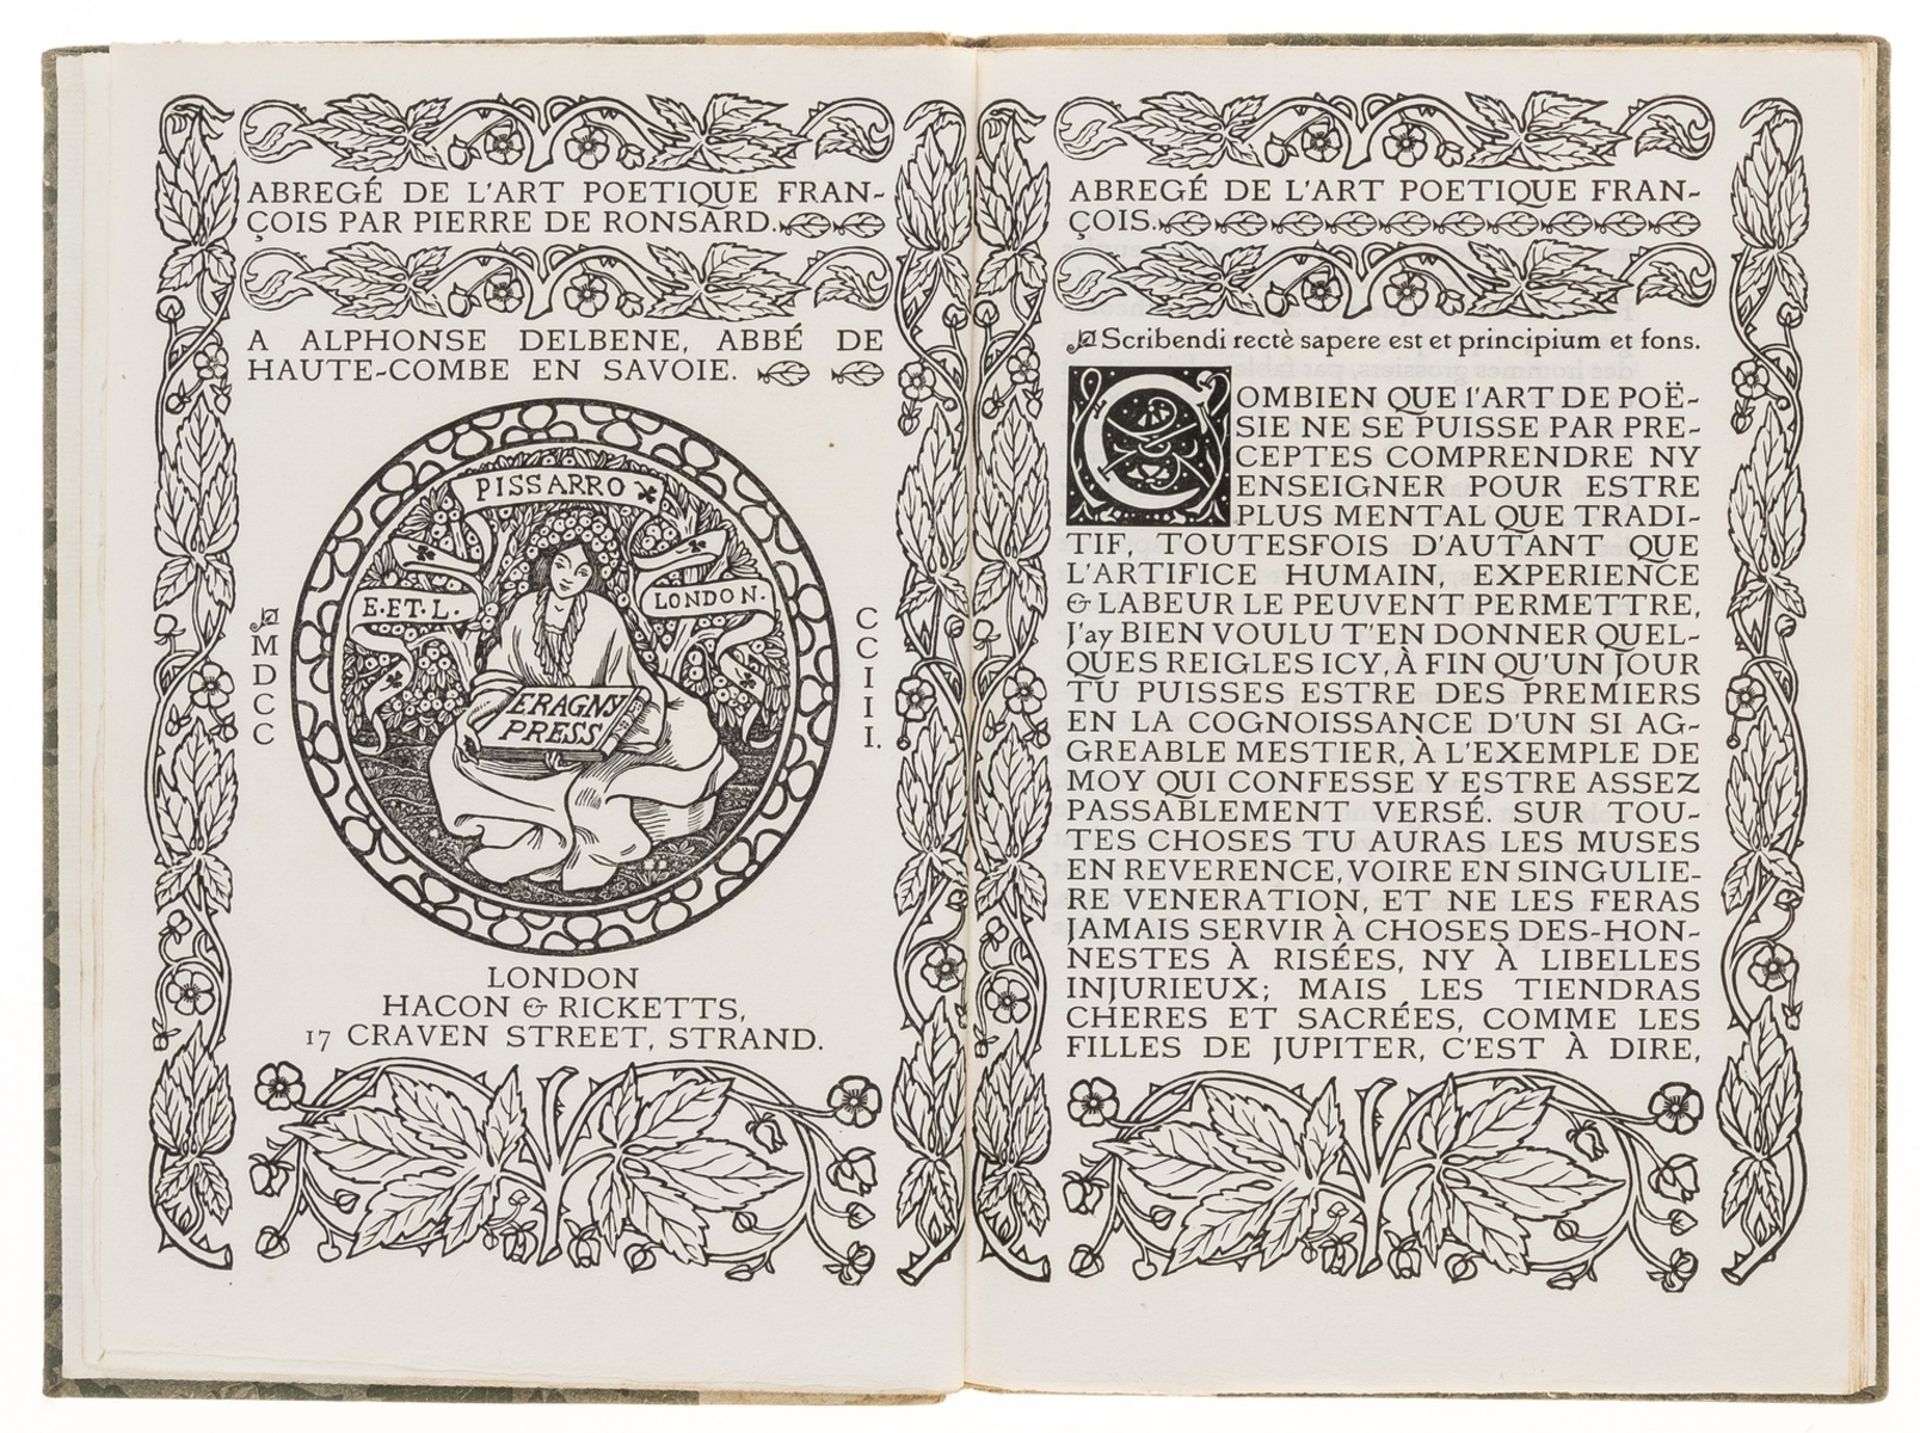 ABREGÉ DE L'ART POETIQUE FRAN-
ÇOIS PAR PIERRE DE RONSARD.
A ALPHONSE DELBENE, ABBÉ DE
HAUTE-COMBE EN SAVOIE.
PISSARRO
E. ET. L.
LONDON.
ERAGNY
PRESS
MDCC
CCIII.
LONDON
HACON & RICKETTS,
17 CRAVEN STREET, STRAND.
ABREGÉ DE L'ART POETIQUE FRAN-
ÇOIS.
Scribendi rectè sapere est et principium et fons.
COMBIEN QUE l'ART DE POË-
SIE NE SE PUISSE PAR PRE-
CEPTES COMPRENDRE NY
ENSEIGNER POUR ESTRE
PLUS MENTAL QUE TRADI-
TIF, TOUTESFOIS D'AUTANT QUE
L'ARTIFICE HUMAIN, EXPERIENCE
& LABEUR LE PEUVENT PERMETTRE,
J'ay BIEN VOULU T'EN DONNER QUEL-
QUES REIGLES ICY, À FIN QU'UN JOUR
TU PUISSES ESTRE DES PREMIERS
EN LA COGNOISSANCE D'UN SI AG-
GREABLE MESTIER, À L'EXEMPLE DE
MOY QUI CONFESSE Y ESTRE ASSEZ
PASSABLEMENT VERSÉ. SUR TOU-
TES CHOSES TU AURAS LES MUSES
EN REVERENCE, VOIRE EN SINGULIE-
RE VENERATION, ET NE LES FERAS
JAMAIS SERVIR À CHOSES DES-HON-
NESTES À RISÉES, NY À LIBELLES
INJURIEUX; MAIS LES TIENDRAS
CHERES ET SACRÉES, COMME LES
FILLES DE JUPITER, C'EST À DIRE,